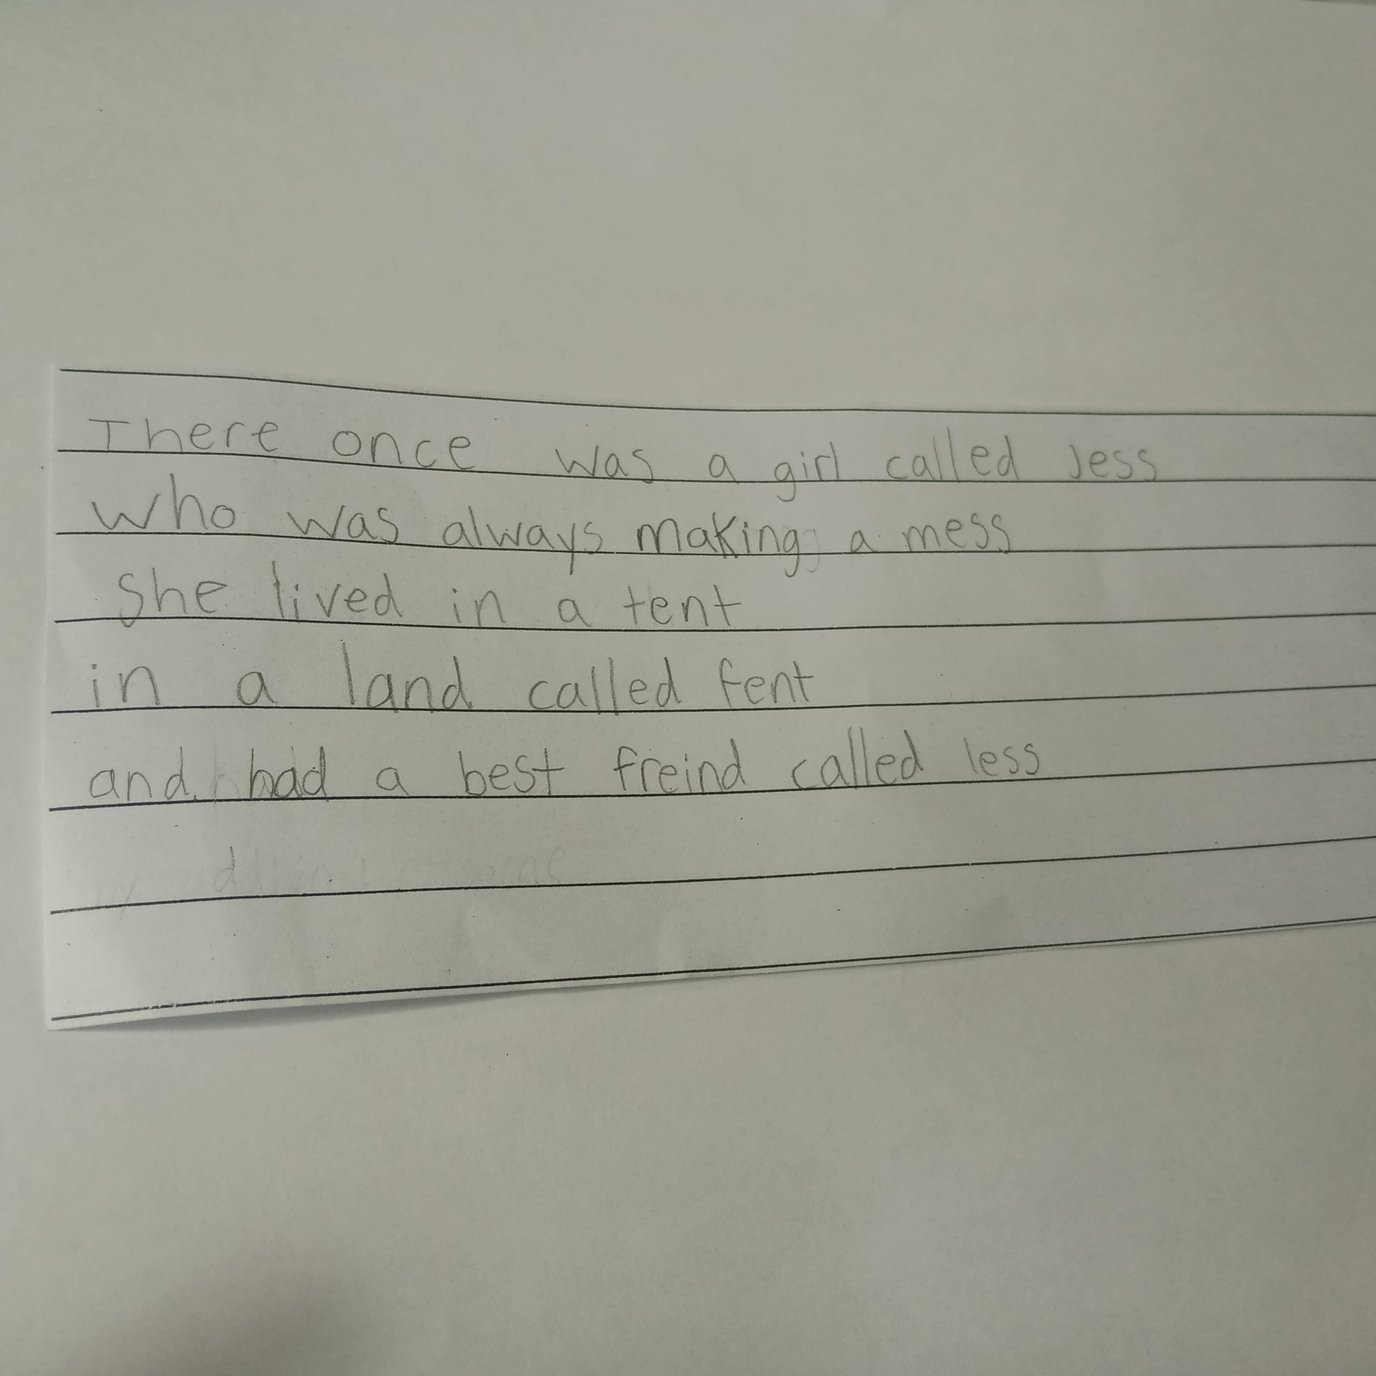 There once was a girl called Jess
who was always making a mess
She lived in a tent
in a land called fent
and had a best freind called less